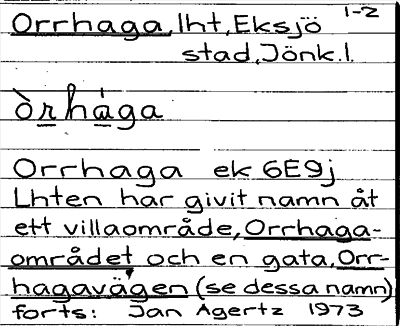 Orrhaga, lht, Eksjö 1-2
stad, Jönk. l.
òrhàga
Orrhaga ek 6E9j
Lhten har givit namn åt
ett villaområde, Orrhaga-
området och en gata, Orr-
hagavägen (se dessa namn)
forts: Jan Agertz 1973